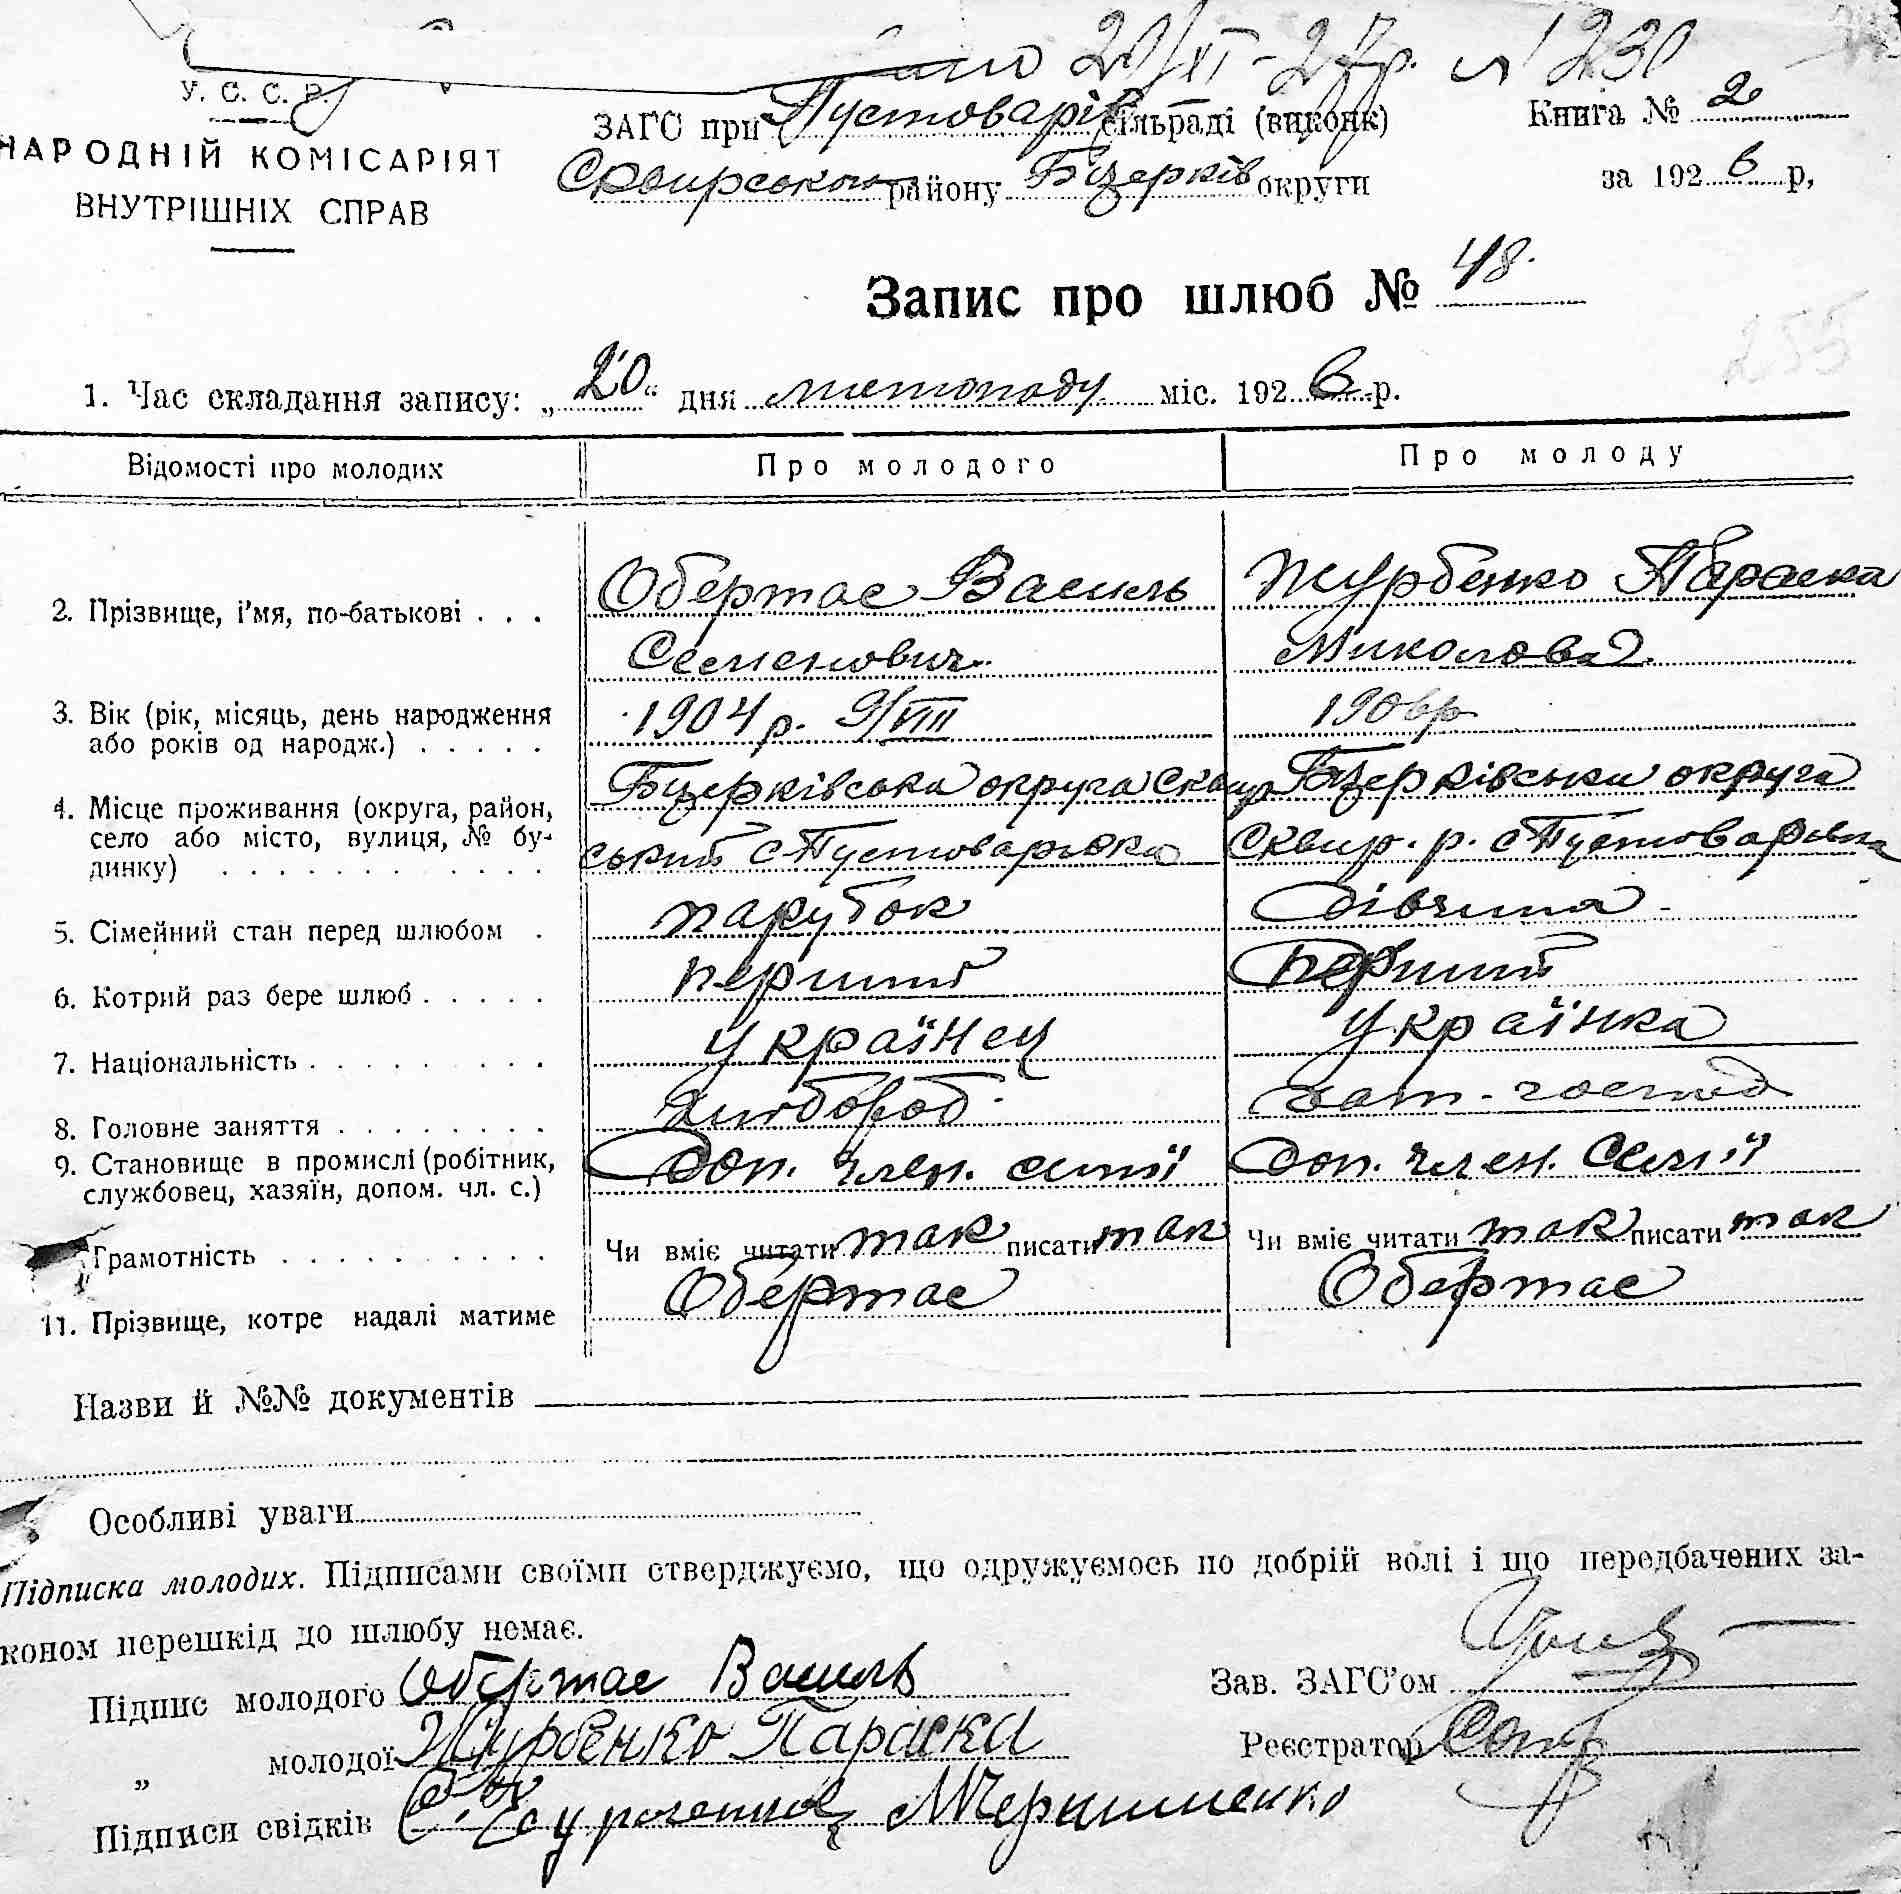 20/XI-27р. № 1230
У. С. С. Р.
НАРОДНІЙ КОМІСАРІЯТ
ВНУТРІШНІХ СПРАВ
ЗАГС при Пустоварів сільраді (виконк)
Сквирського району Б/Церків округи
Книга № 2
за 1926 р,
Запис про шлюб № 48.
255
1. Час складання запису: „20“ дня листопаду міс. 1926 р.
Відомості про молодих Про молодого Про молоду
2. Прізвище, і'мя, по-батькові . . . Обертас Василь Журбенко Параска
Семенович Миколова
3. Вік (рік, місяць, день народження 1904 р. 9/VIII 1906р
або років од народж.) . . . . .
4. Місце проживання (округа, район, Бцерківська округа Сквир Бцерківськи округа
село або місто, вулиця, № бу- ський с Пустоварівка Сквир. р. с Пустоварівка
динку) . . . . . . . . . . . .
5. Сімейний стан перед шлюбом . парубок дівчина
6. Котрий раз бере шлюб . . . . . перший перший
7. Національність . . . . . . . . . українец українка
8. Головне заняття . . . . . . . . хлібороб хат. господ
9. Становище в промислі (робітник, Доп. член. симї Доп. член. семії
службовец, хазяїн, допом. чл. с.)
Грамотність . . . . . . . . . . Чи вміє читати так писати так Чи вміє читати так писати так
11. Прізвище, котре надалі матиме Обертас Обертас
Назви й №№ документів
Особливі уваги
Підписка молодих. Підписами своїми стверджуємо, що одружуємось по добрій волі і що передбачених за-
коном перешкід до шлюбу немає.
Підпис молодого Обертас Василь Зав. ЗАГС'ом
„ молодої Журбенко Параска Реєстратор
Підписи свідків